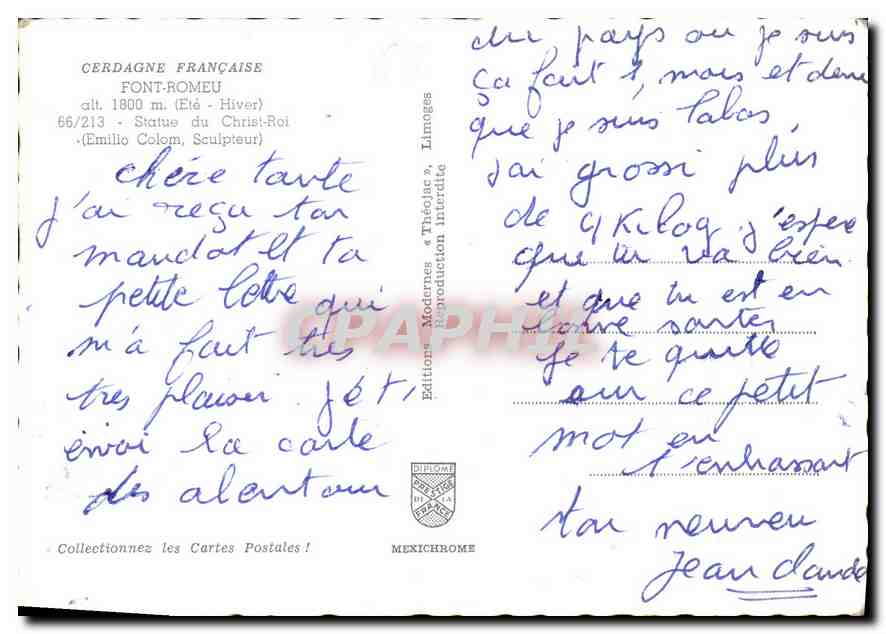 CERDAGNE FRANÇAISE
FONT-ROMEU
alt. 1800 m. (Eté - Hiver)
66/213 - Statue du Christ-Roi
(Emilio Colom, Sculpteur)
chére tante
j'ai reçu ton
mandat et ta
petite lettre qui
m'a fait très
tres plaisir. jé t'
envoi la carte
des alentour
Collectionnez les Cartes Postales !
Editions Modernes « Théojac », Limoges
Reproduction interdite
DIPLOME
PRESTIGE
DE LA
FRANCE
MEXICHROME
du pays ou je suis
ça fait 1, mois et demi
que je suis labas,
j'ai grossi plus
de 4 Kilog. j'espere
que tu va bien
et que tu est en
bonne santes
je te quitte
sur ce petit
mot en
t'enbrassant
ton neuveu
Jean claude
CPAPHIL